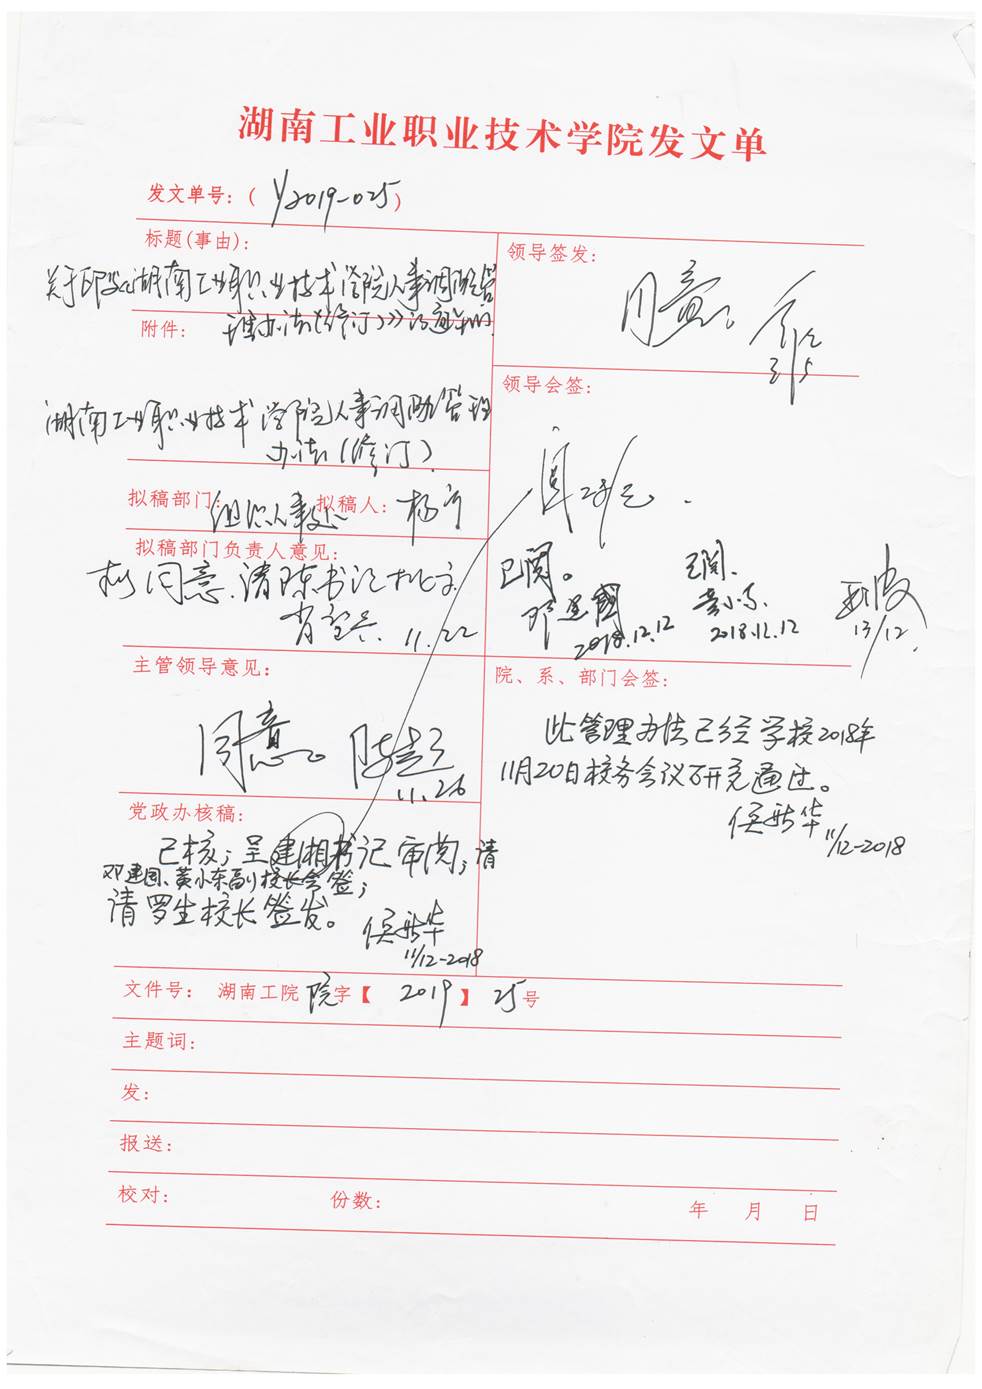 湖南工业职业技术学院发文单
发文单号：( y2019-025 )
标题(事由):
关于印发《湖南工业职业技术学院人事调配管
理办法(修订)》的通知
附件：
湖南工业职业技术学院人事调配管理
办法(修订)
拟稿部门： 组织人事处 拟稿人： 杨
拟稿部门负责人意见：
同意.请陈书记批示
11.22
主管领导意见：
同意。
11.26
党政办核稿：
已核；呈建湘书记审阅；请
邓建国、黄小东副校长会签；
请罗生校长签发。
侯新华
11/12-2018
领导签发：
同意。
领导会签：
已阅。
邓建國
2018.12.12
已阅.
黄小东.
2018.12.12
13/12.
院、系、部门会签：
此管理办法已经学校2018年
11月20日校务会议研究通过。
侯新华
11/12-2018
文件号： 湖南工院 院 字【 2019 】 25 号
主题词：
发：
报送：
校对： 份数： 年 月 日